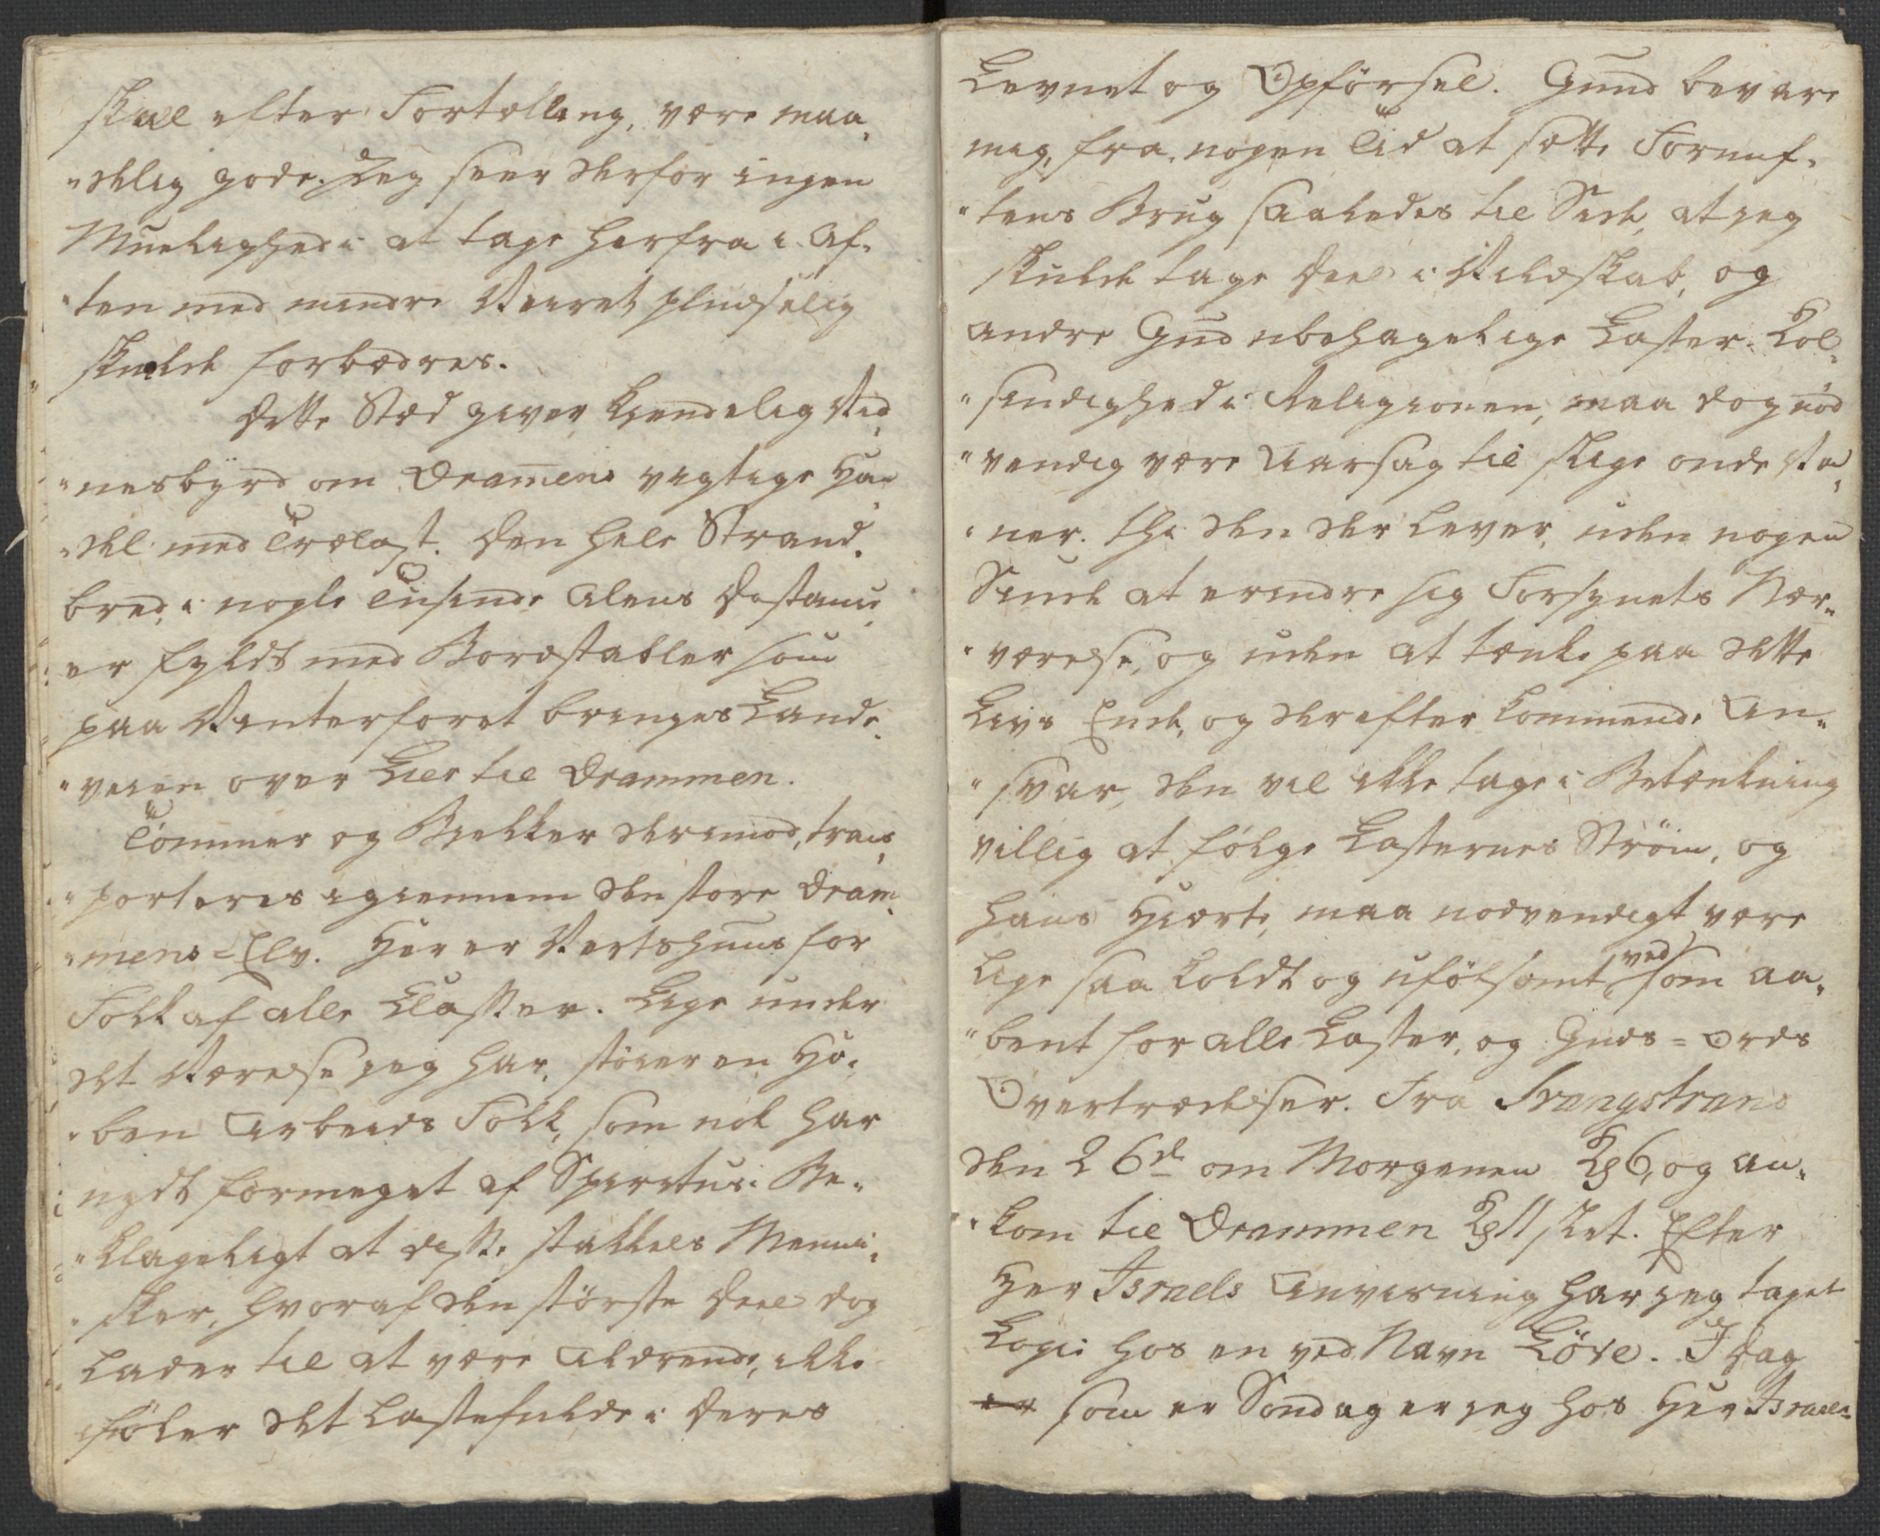 skal efter Fortælling, være maa„
„delig gode. Jeg seer derfor ingen
Muelighed i at tage herfra i Af„
„ten med mindre Veiret pludselig
skulde forbædres.
Dette Stæd giver kiendelig Vid„
„nesbyrd om Dramens vigtige Han„
„del med Trælast. Den hele Strand„
bred, i nogle Tusinde Alens Distance,
er fyldt med Bordstabler som
paa Vinterforet bringes Lande„
„veien over Lier til Drammen.
Tömmer og Bielker derimod, trans„
„porteres igiennem den store Dram„
„mens=Elv. Her er Vertshuus for
Folk af alle Classer. Lige under
det Værelse jeg har, störer en Ho„
„ben Arbeids Folk, som nok har
nydt formeget af Spiritus. Be„
„klageligt at disse stakkels Menni„
„sker, hvoraf den störste Deel dog
lader til at være Aldrende, ikke
föler det lastefulde i deres
Levnet og Opförsel. Gud bevare
mig, fra nogen Tid at sætte Fornuf„
„tens Brug saaledes til Side, at jeg
skulde tage Deel i Vildskab, og
andre Gud ubehagelige Laster. Kol„
„sindighed i Religionen, maa dog nöd„
„vendig være Aarsag til slige onde Va„
„ner. thi den der lever, uden nogen
Sinde at erindre sig Forsynets Nær„
„værelse, og uden at tænke paa dette
Livs Ende, og derefter kommende An„
„svar, den vil ikke tage i Betænkning
villig at fölge Lasternes Ström, og
hans Hierte, maa nodvendigt være
lige saa koldt og ufölsomt ved, som aa„
„bent for alle Laster, og Guds=Ords
Overtrædelser. Fra Svangstrand
den 26de om Morgenen Kl 6, og an„
„kom til Drammen Kl 11 slet. Efter
Her Israels Anvisning har jeg taget
Logi hos en ved Navn Löve. I Dag
er som er Söndag er jeg hos Her Israels